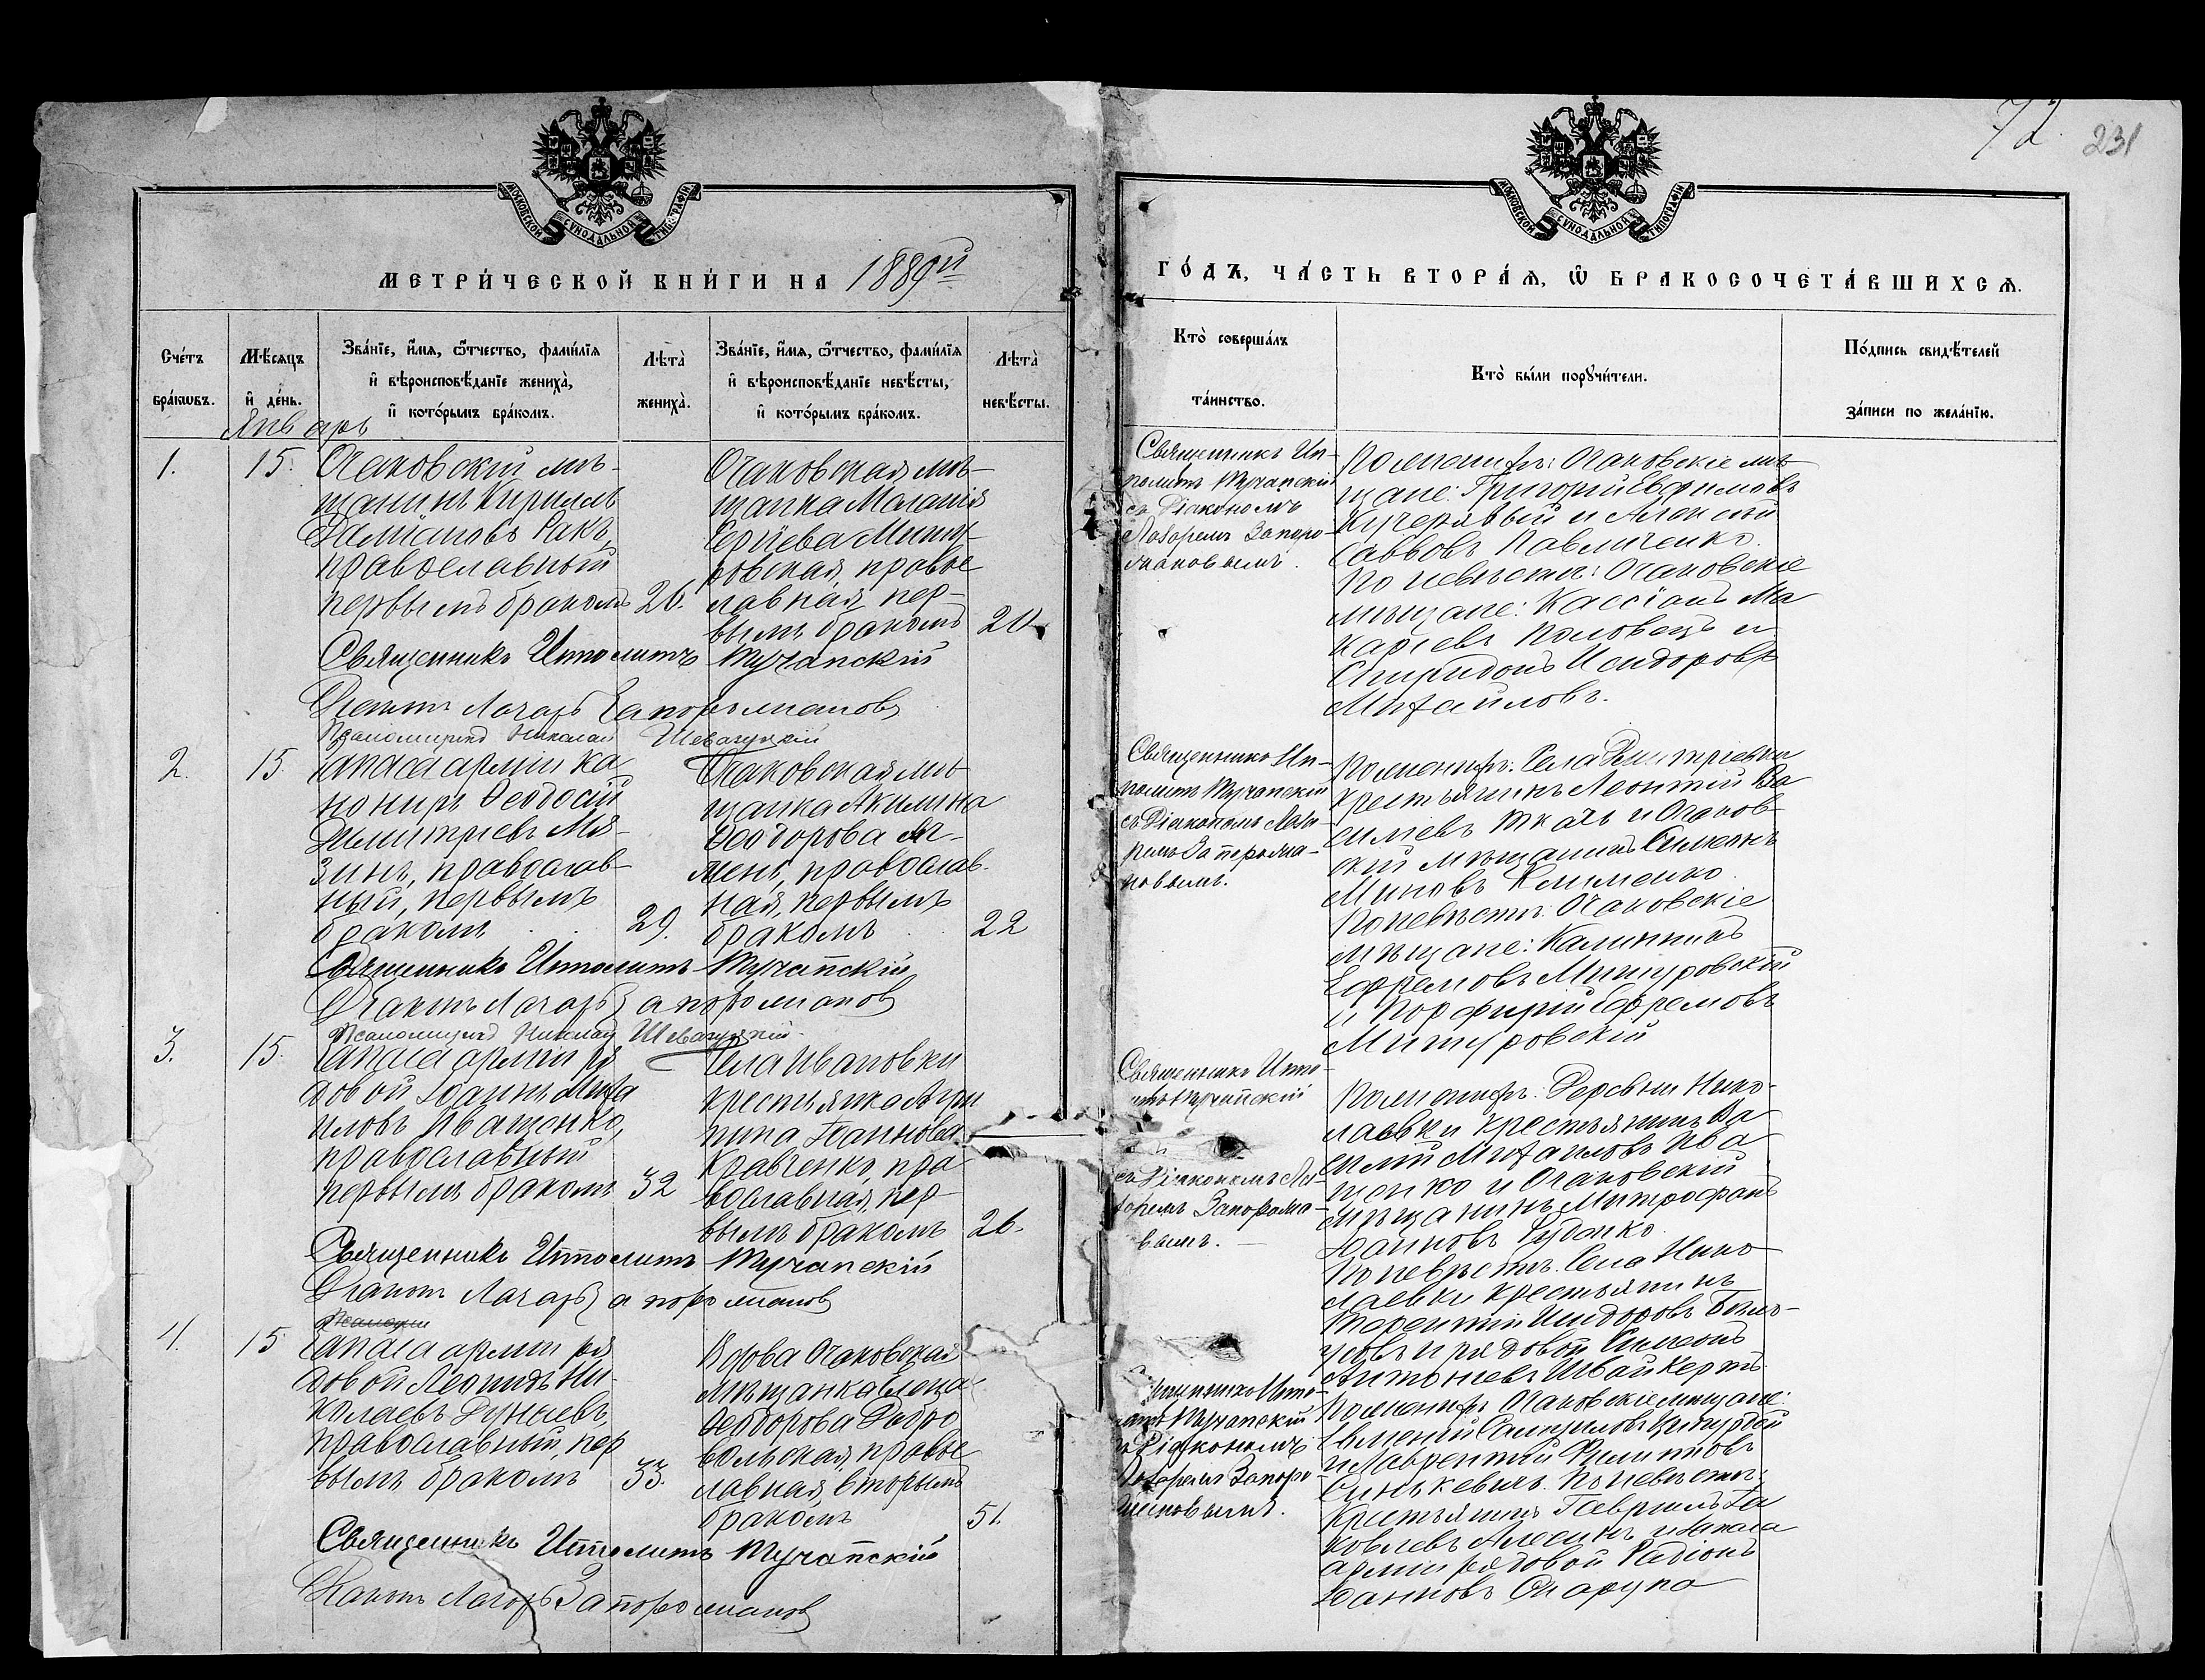 72
231
МОСКОВСКОЙ СѴНОДАЛЬНОЙ ТИПОГРАФІИ
МОСКОВСКОЙ СѴНОДАЛЬНОЙ ТИПОГРАФІИ
МЕТРИ́ЧЕСКОЙ КНИ́ГИ НА 1889й
ГО́ДЪ, ЧА́СТЬ ВТОРА́Ѧ, Ѽ БРАКОСОЧЕТА́ВШИХСѦ.
Сче́тъ бра́кѡвъ.
Мѣ́сѧцъ и҆ де́нь.
Зва́нїе, и҆́мѧ, ѻ҆́тчество, фами́лїѧ и҆ вѣроисповѣ́данїе жениха̀, и҆ кото́рымъ бра́комъ.
Лѣта̀ жениха̀.
Зва́нїе, и҆́мѧ, ѻ҆́тчество, фами́лїѧ и҆ вѣроисповѣ́данїе невѣ́сты, и҆ кото́рымъ бра́комъ.
Лѣта̀ невѣ́сты.
Кто̀ соверша́лъ та́инство.
Кто̀ бы́ли порꙋчи́тели.
По́дпись свидѣ́телей за́писи по жела́нїю.
Январь
1.
15.
Очаковскій мѣ-
щанинъ Кириллъ
Даміановъ Ракъ,
православный
первымъ бракомъ
26.
Очаковская мѣ-
щанка Маланія
Сергіева Мишу-
ровская, правос
лавная, пер-
вымъ бракомъ
Священникъ Ип-
политъ Тучапскій
съ Діакономъ
Лазаремъ Запоро-
жановымъ.
По женихѣ: Очаковскіе мѣ-
щане: Григорій Евфимовъ
Кучерявый и Алексѣй
Саввовъ Павличенко.
По невѣстѣ: Очаковскіе
мѣщане: Кассіанъ Ма
каріевъ Половецъ и
Спиридонъ Исидоровъ
Михайловъ.
Священникъ Ипполитъ Тучапскій
Псаломщикъ Николай
2.
15.
Запаса арміи ка-
нониръ Ѳеодосій
Димитріевъ Мя-
зинъ, православ-
ный, первымъ
бракомъ
29.
Очаковская мѣ-
щанка Акилина
Ѳеодорова
православ-
ная, первымъ
бракомъ
22
Священникъ Ип-
политъ Тучапскій
съ Діакономъ Лаза-
ремъ
новымъ.
По женихѣ: Села Димитріевки
крестьянинъ Леонтій Ва
силіевъ Ткачъ и Очаков-
скій мѣщанинъ Симеонъ
Миновъ Клименко.
По невѣстѣ: Очаковскіе
мѣщане: Каллиникъ
Ефремовъ Мишуровскій
и Порфирій Ефремовъ
Мишуровскій
Священникъ Ипполитъ Тучапскій
Псаломщикъ Николай
3.
15.
Запаса арміи ря
довой Іоаннъ Миха
иловъ Иващенко,
православный
первымъ бракомъ
32
Села Ивановки
крестьянка Агри
пина Іоаннова
Кравченко, пра
вославная, пер-
вымъ бракомъ
26.
Священникъ Иппо-
литъ Тучапскій
съ Діакономъ Ла-
заремъ
вымъ.
По женихѣ: Деревни Нико-
лаевки крестьянинъ Ва
силій Михаиловъ Ива
щенко и Очаковскій
мѣщанинъ Митрофанъ
Іоанновъ Руденко.
По невѣстѣ: Села Нико
лаевки крестьянинъ
Терентій Исидоровъ
и рядовой Симеонъ
Антоніевъ
Священникъ Ипполитъ Тучапскій
4.
15
Запаса арміи ря
довой Леонидъ Ни-
колаевъ
православный, пер
вымъ бракомъ
33.
Вдова Очаковская
мѣщанка Елена
Ѳеодорова Добро
вольская, правос
лавная, вторымъ
бракомъ
51.
Тучапскій
Діакономъ
Лазаремъ Запоро-
жановымъ.
По женихѣ Очаковскіе мѣщане:
и Лаврентій Филиповъ
Синькевичъ. По невѣстѣ:
Крестьянинъ Гавриилъ Іа
ковлевъ и запаса
арміи рядовой Радіонъ
Іоанновъ Скарупа
Священникъ Ипполитъ Тучапскій